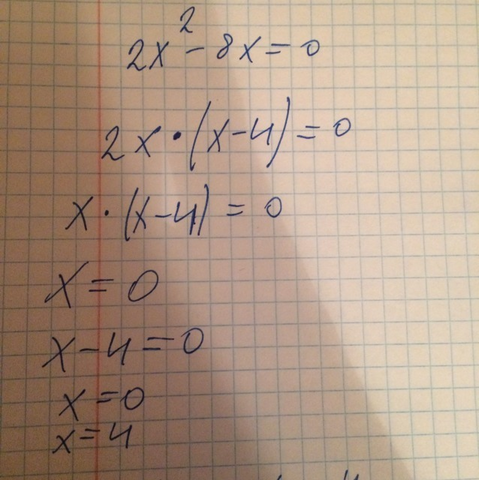 2x² - 8x = 0
2x · (x - 4) = 0
x · (x - 4) = 0
x = 0
x - 4 = 0
x = 0
x = 4